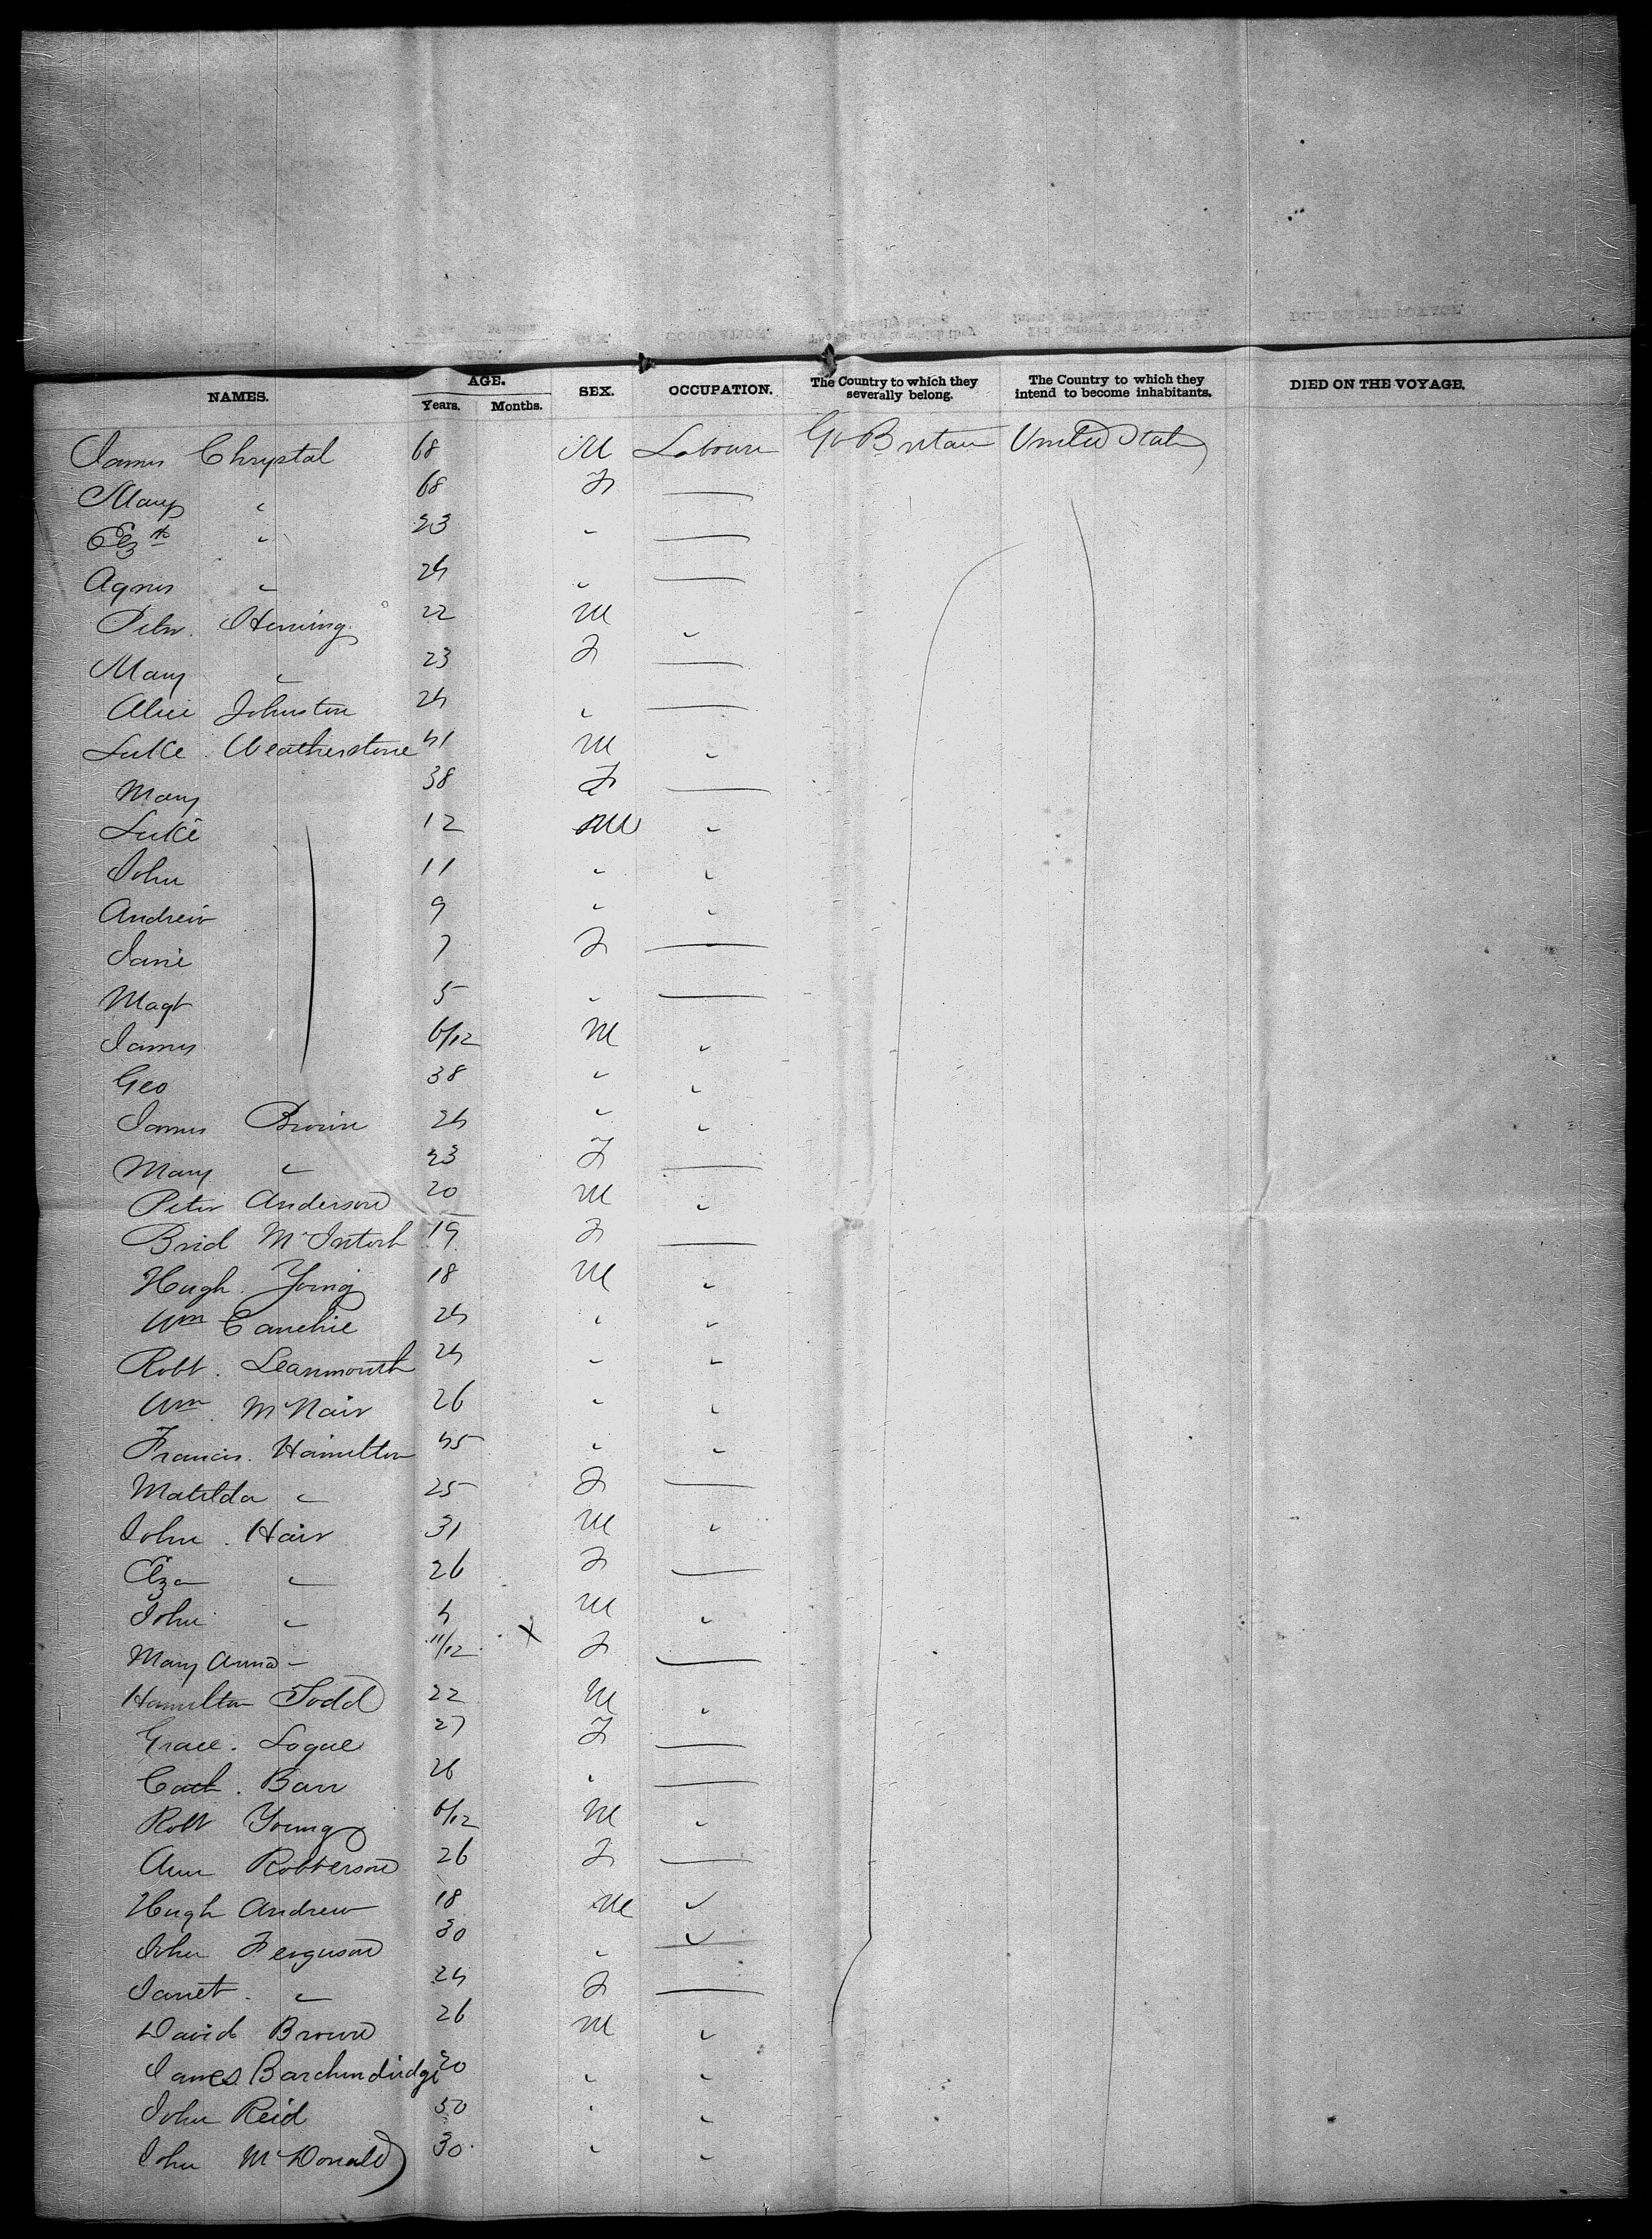 NAMES. AGE. Years. Months. SEX. OCCUPATION. The Country to which they severally belong. The Country to which they intend to become inhabitants. DIED ON THE VOYAGE.
James Chrystal 68 M Labourer Gt Britain United States
Mary " 68 F —
Elizth " 23 " —
Agnes " 24 " —
Peter Heming 22 M "
Mary " 23 F —
Alice Johnston 24 " —
Luke Weatherstone 41 M "
Mary 38 F —
Luke 12 M "
John 11 " "
Andrew 9 " "
Jane 7 F —
Magt 5 " —
James 6/12 M "
Geo 38 " "
James Brown 24 " "
Mary " 23 F —
Peter Anderson 20 M "
Brid McIntosh 19 F —
Hugh Young 18 M "
Wm 24 " "
Robt Learmouth 24 " "
Wm McNair 26 " "
Francis Hamilton 45 " "
Matilda " 25 F —
John Hair 31 M "
Eliza " 26 F —
John " 4 M "
Mary Anna " 11/12 X F —
Hamilton Todd 22 M "
Grace Logue 27 F —
Cath Barr 26 " —
Robt Young 6/12 M "
Ann Robberson 26 F —
Hugh Andrew 18 M "
John Ferguson 30 " "
Janet " 24 F —
David Brown 26 M "
James 20 " "
John Reid 50 " "
John McDonald 30 " "